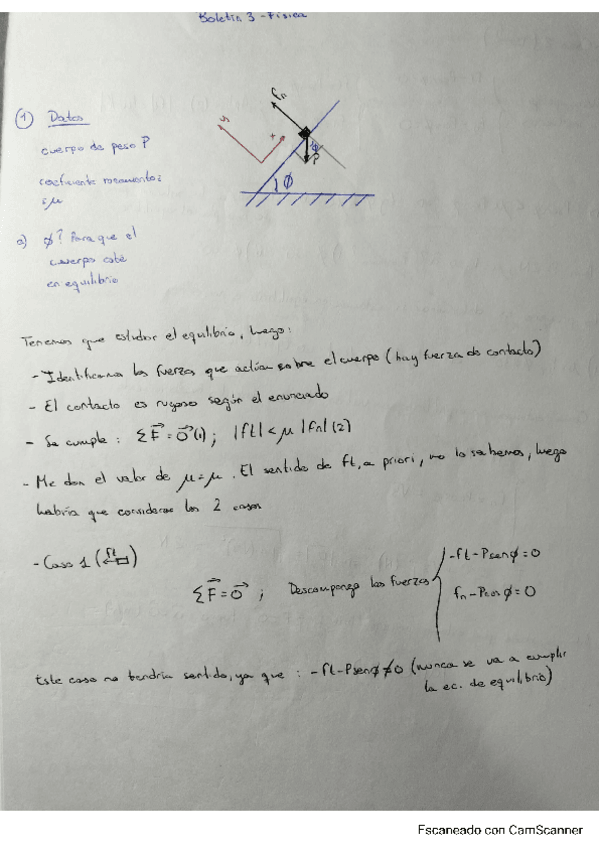 Boletín 3 - Física
① Datos
cuerpo de peso P
coeficiente rozamiento:
μ
a) ϕ? Para que el
cuerpo esté
en equilibrio
fn
y
+
ϕ
P
ϕ
Tenemos que estudiar el equilibrio, luego:
- Identificamos las fuerzas que actúan sobre el cuerpo (hay fuerza de contacto)
- El contacto es rugoso según el enunciado
- Se cumple: ΣF⃗ = 0⃗ (1); |ft| < μ |fn| (2)
- Me dan el valor de μ = μ. El sentido de ft, a priori, no lo sabemos, luego
habría que considerar los 2 casos
- Caso 1 (ft)
-ft - P sen ϕ = 0
ΣF⃗ = 0⃗ ; Descompongo las fuerzas
fn - P cos ϕ = 0
Este caso no tendría sentido, ya que: -ft - P sen ϕ ≠ 0 (nunca se va a cumplir
la ec. de equilibrio)
Escaneado con CamScanner